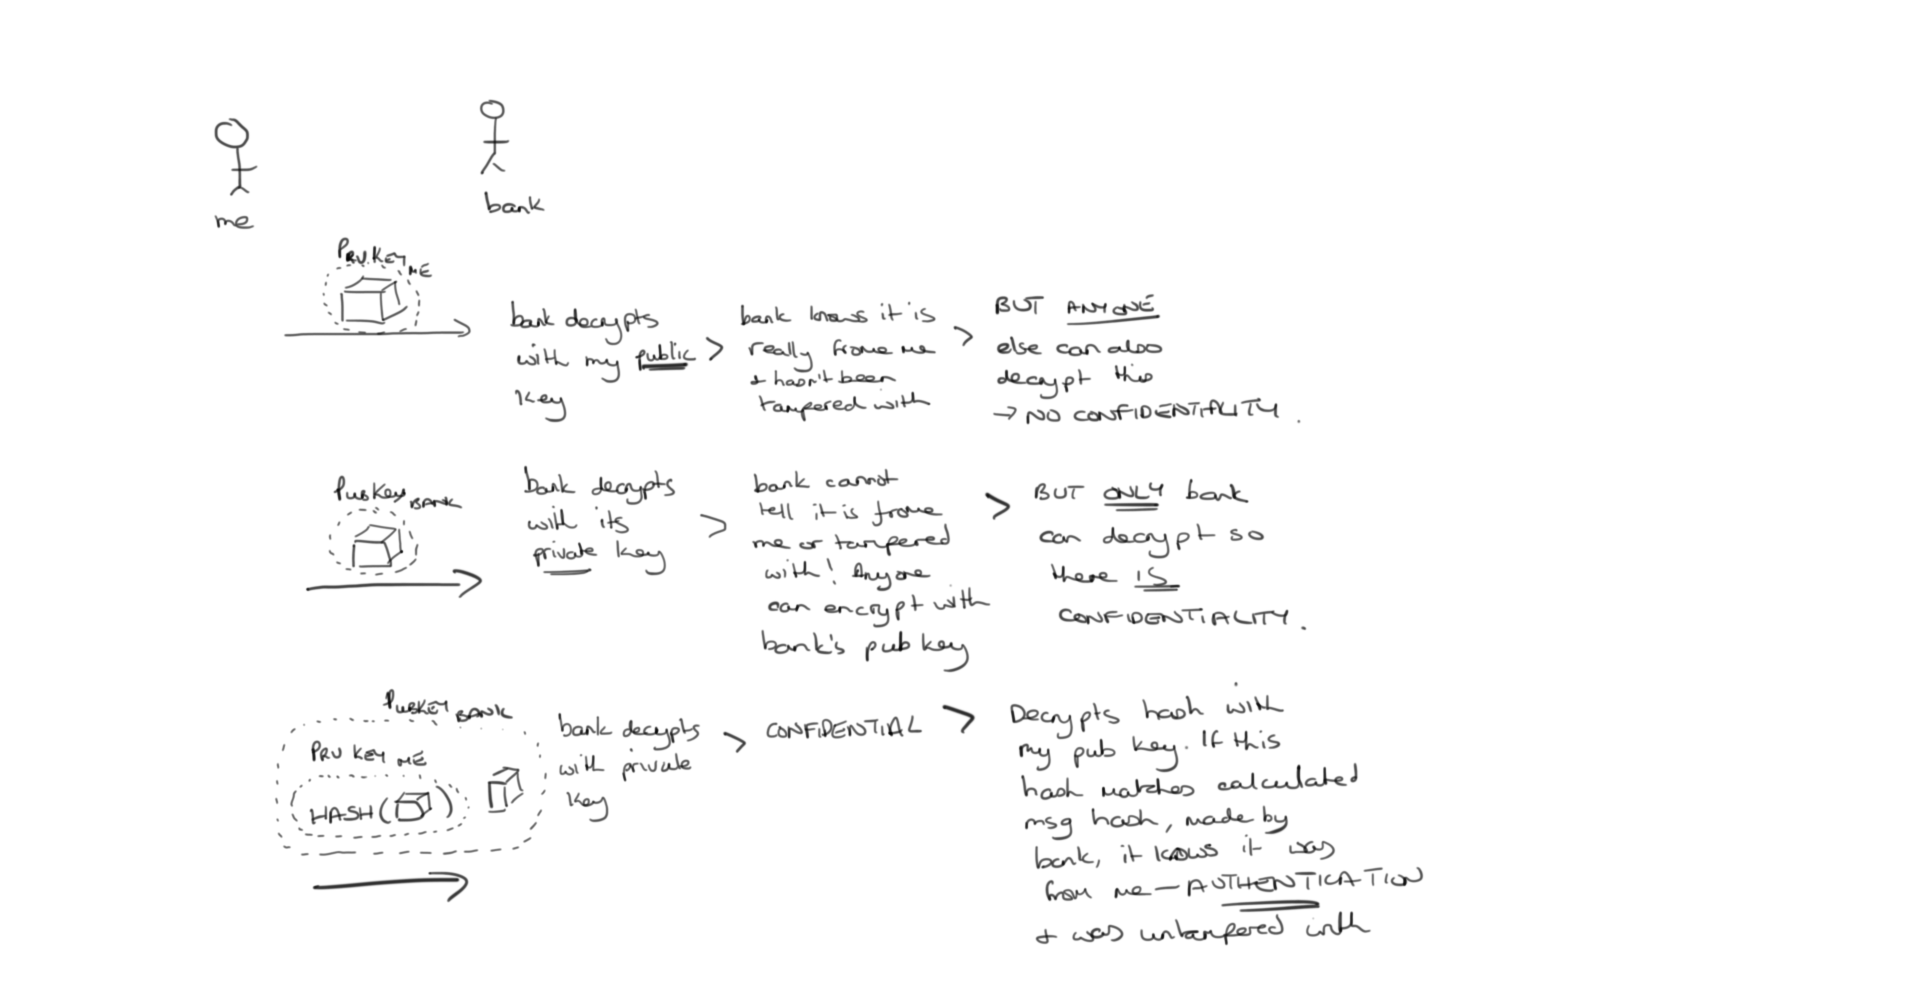 me
bank
PRV KEY ME
bank decrypts
with my public
key
>
bank knows it is
really frome me
+ hasn't been
tampered with
>
BUT ANYONE
else can also
decrypt this
→ NO CONFIDENTIALITY.
PUBKEY BANK
bank decrypts
with its
private key
>
bank cannot
tell it is frome
me or tampered
with! Anyone
can encrypt with
bank's pub key
>
BUT ONLY bank
can decrypt so
there IS
CONFIDENTIALITY.
PUBKEY BANK
PRV KEY ME
HASH( )
bank decypts
with private
key
>
CONFIDENTIAL
>
Decrypts hash with
my pub key. If this
hash matches calculated
msg hash, made by
bank, it knows it was
from me – AUTHENTICATION
+ was untampered with